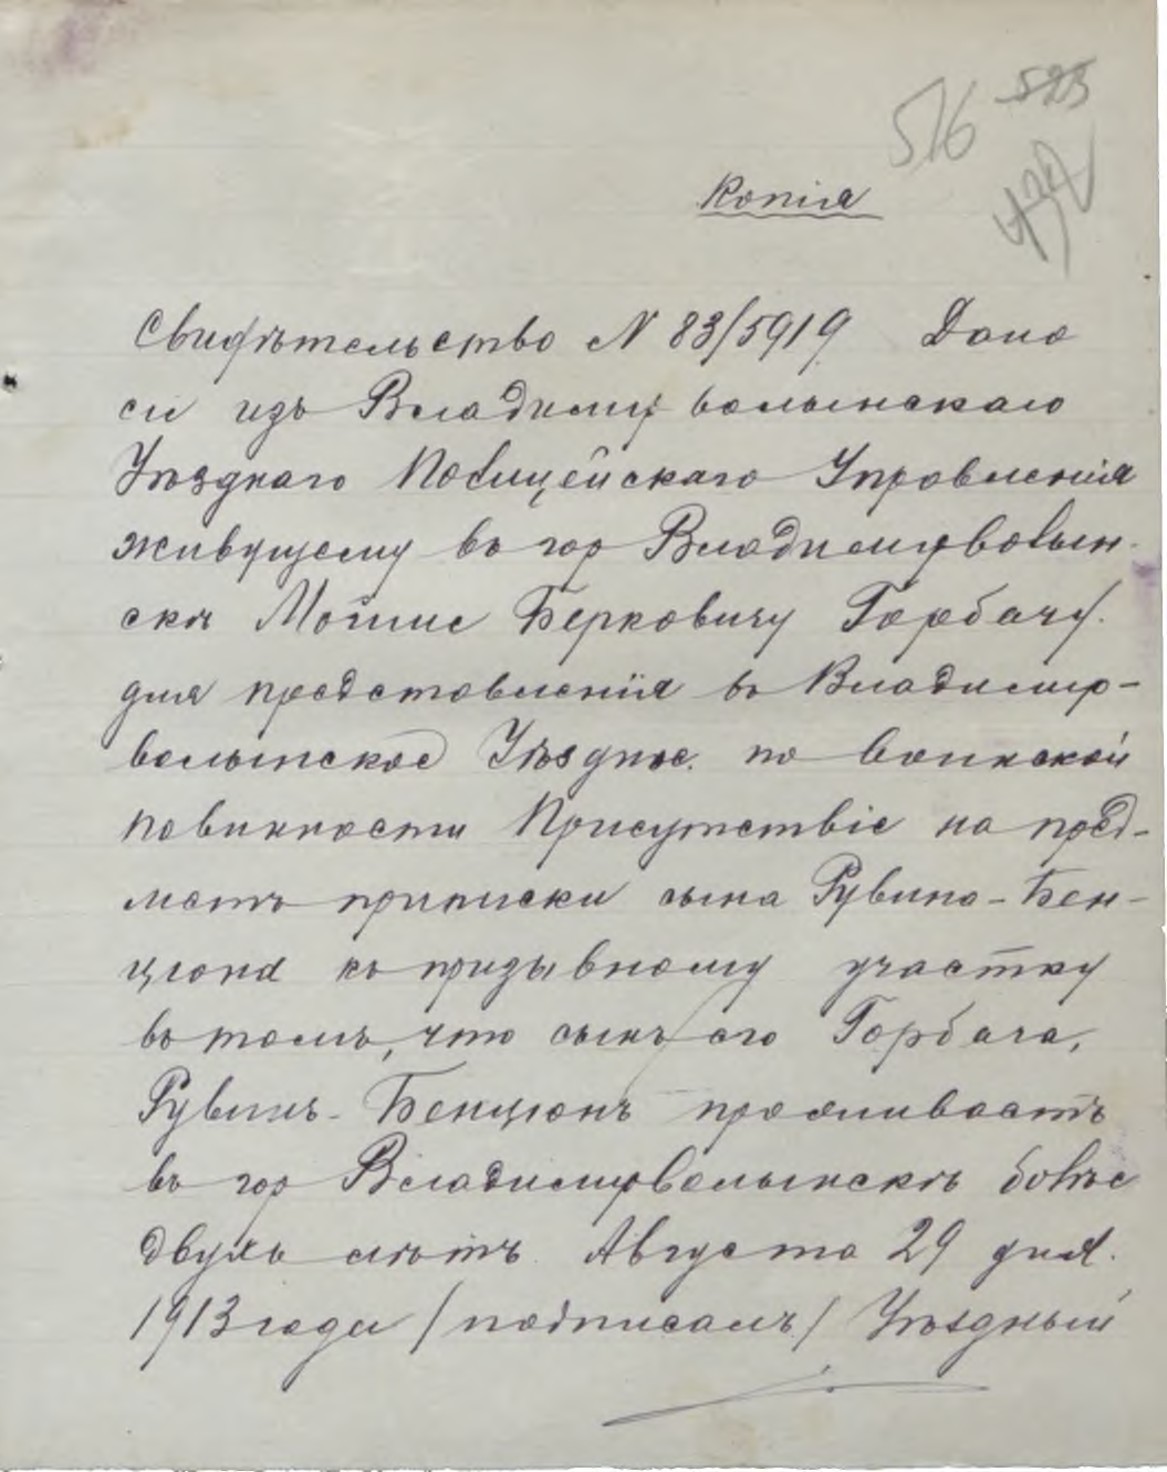 516 523
432
Копія
Свидѣтельство N 83/5919 Дано
сіе изъ Владимір волынскаго
Уѣзднаго Полицейскаго Управленія
живущему въ гор Владимірволын-
скѣ Мошше Берковичу Горбачу.
для представленія въ Владимір-
волынское Уѣздное по воинской
повинности Присутствіе на пред-
метъ приписки сына Рувина-Бен-
ціона къ призывному участку
въ томъ, что сынъ его Горбача,
Рувинъ-Бенціонъ проживаетъ
въ гор Владимірволынскѣ болѣе
двухъ лѣтъ. Августа 29 дня.
1913 года /подписалъ/ Уѣздный